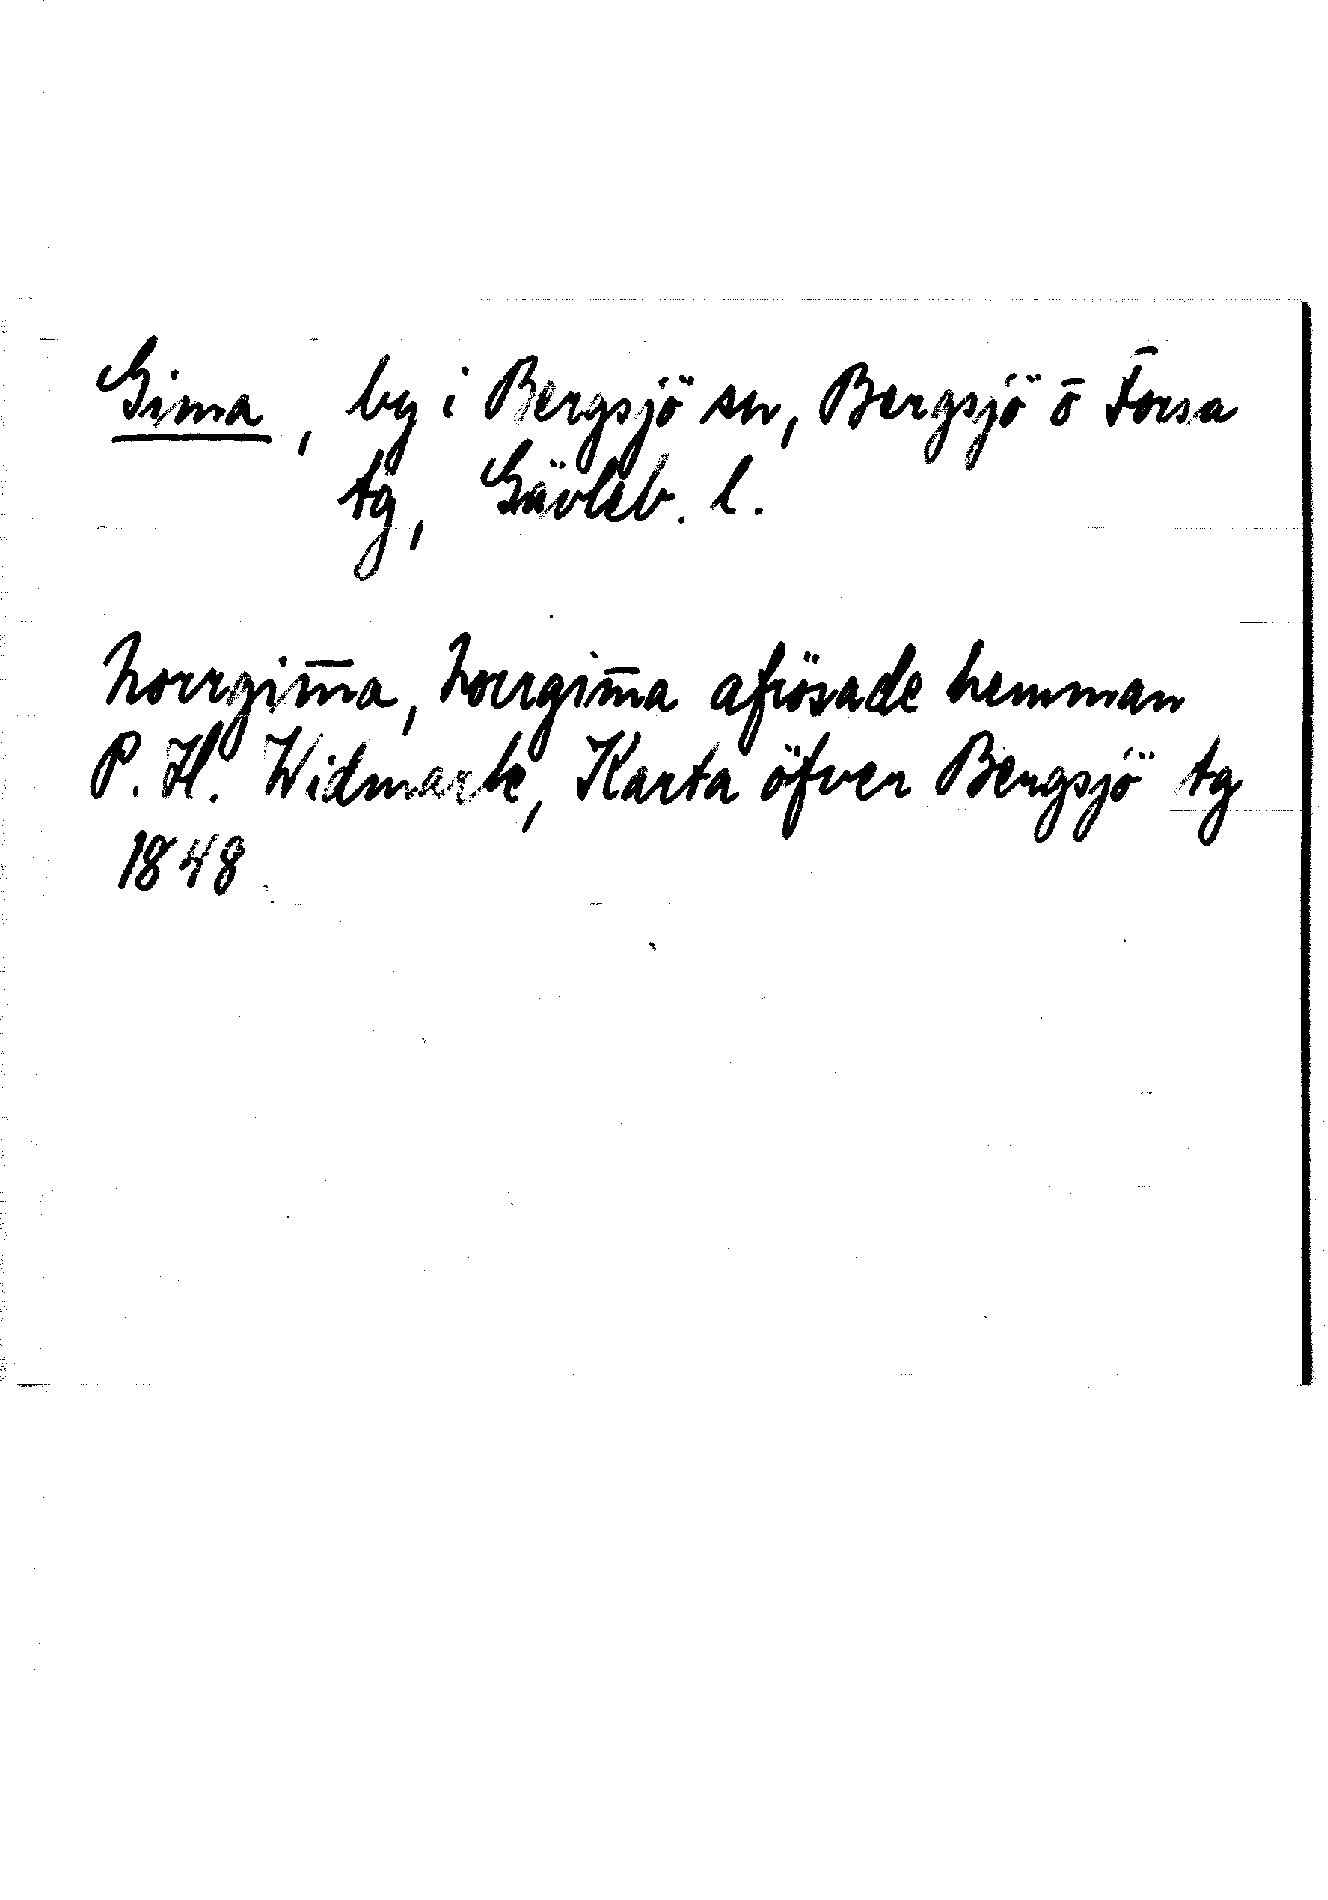 Gima, by i Bergsjö sn, Bergsjö o Forsa
tg, Gävleb. l.
Norrgim̅a, Norrgim̅a afrösade hemman
P. H. Widmark, Karta öfver Bergsjö tg
1848